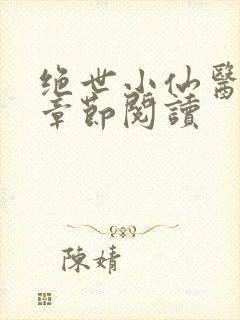 绝世小仙醫
章節閱讀
陳婧